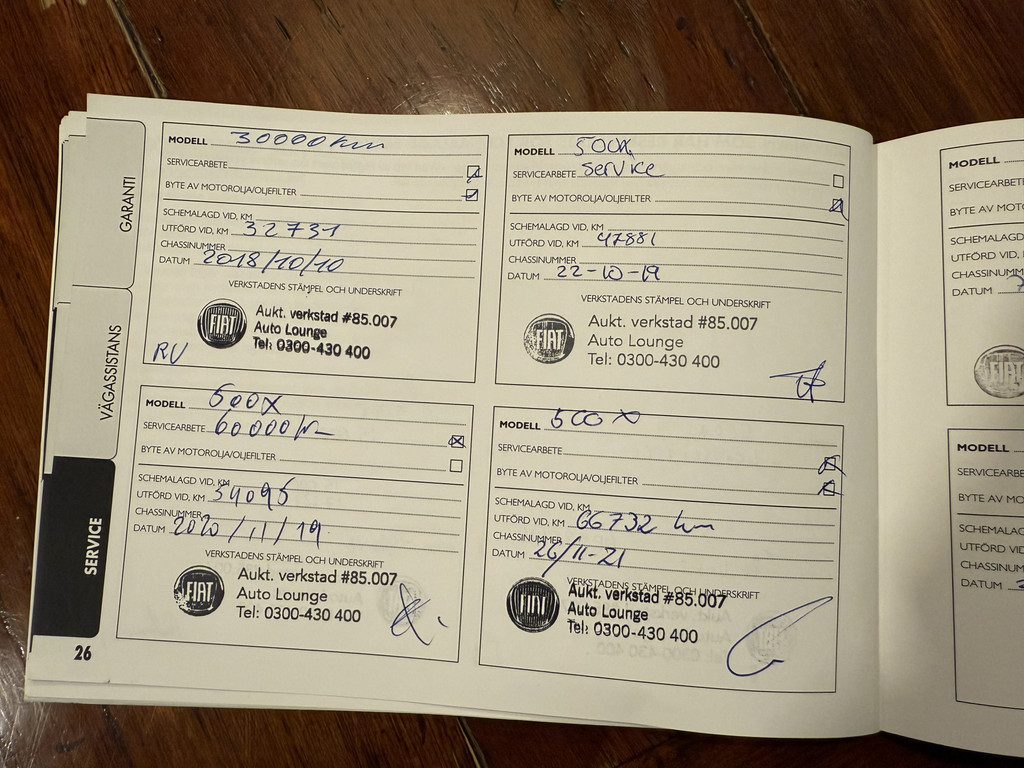 GARANTI
VÄGASSISTANS
SERVICE
26
MODELL 30000 km
SERVICEARBETE
BYTE AV MOTOROLJA/OLJEFILTER
SCHEMALAGD VID, KM
UTFÖRD VID, KM 32731
CHASSINUMMER
DATUM 2018/10/10
VERKSTADENS STÄMPEL OCH UNDERSKRIFT
FIAT
Aukt. verkstad #85.007
Auto Lounge
Tel: 0300-430 400
RV
MODELL 500X
SERVICEARBETE Service
BYTE AV MOTOROLJA/OLJEFILTER
SCHEMALAGD VID, KM
UTFÖRD VID, KM 47881
CHASSINUMMER
DATUM 22-10-19
VERKSTADENS STÄMPEL OCH UNDERSKRIFT
FIAT
Aukt. verkstad #85.007
Auto Lounge
Tel: 0300-430 400
MODELL 500X
SERVICEARBETE 60000
BYTE AV MOTOROLJA/OLJEFILTER
SCHEMALAGD VID, KM
UTFÖRD VID, KM 54095
CHASSINUMMER
DATUM 2020/11/19
VERKSTADENS STÄMPEL OCH UNDERSKRIFT
FIAT
Aukt. verkstad #85.007
Auto Lounge
Tel: 0300-430 400
MODELL 500X
SERVICEARBETE
BYTE AV MOTOROLJA/OLJEFILTER
SCHEMALAGD VID, KM
UTFÖRD VID, KM 66732 km
CHASSINUMMER
DATUM 26/11-21
VERKSTADENS STÄMPEL OCH UNDERSKRIFT
FIAT
Aukt. verkstad #85.007
Auto Lounge
Tel: 0300-430 400
MODELL
SERVICEARBE
BYTE AV MOTO
SCHEMALAGD
UTFÖRD VID, K
CHASSINUMM
DATUM
FIAT
MODELL
SERVICEARBE
BYTE AV MOTO
SCHEMALAG
UTFÖRD VID,
CHASSINUM
DATUM